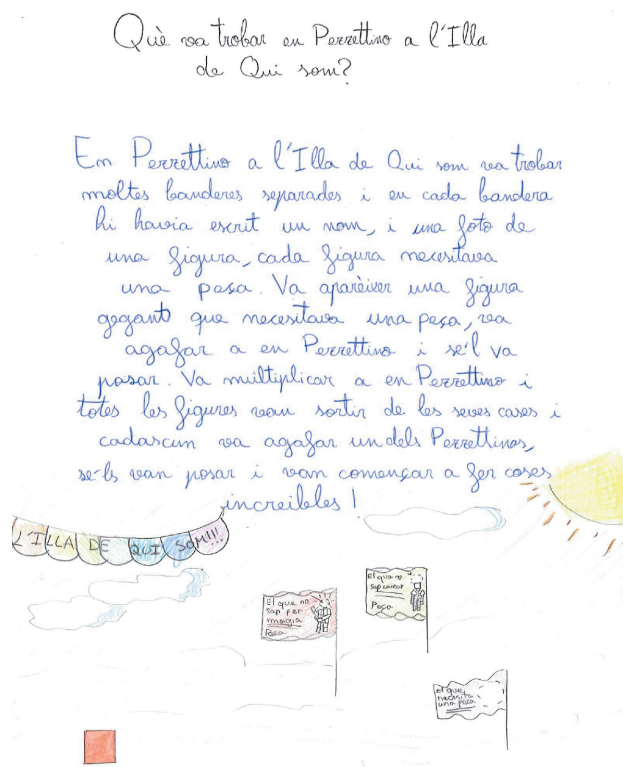 Què va trobar en Pezzettino a l'Illa
de Qui som?
En Pezzettino a l'Illa de Qui som va trobar
moltes banderes separades i en cada bandera
hi havia escrit un nom, i una foto de
una figura, cada figura necesitava
una pesa. Va aparèixer una figura
gegant que necesitava una peça, va
agafar a en Pezzettino i se'l va
posar. Va multiplicar a en Pezzettino i
totes les figures van sortir de les seves cases i
cadascun va agafar un dels Pezzettinos,
se-ls van posar i van començar a fer coses
increibles!
L'ILLA DE QUI SOM!!!
El que no
sap fer
magia
Peça
El que no
sap
Peça
el que
necesita
una peça